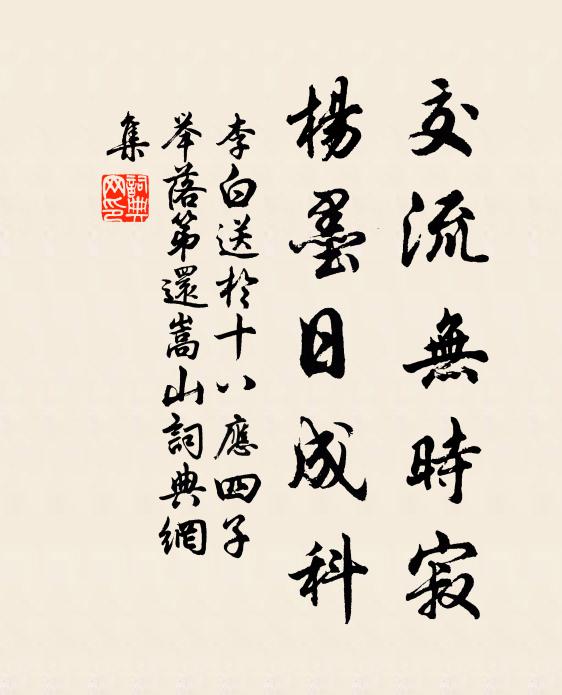 交流無時寂
楊墨日成科
李白送於十八應四子
举落第還嵩山詞典網
集
詞典
网印